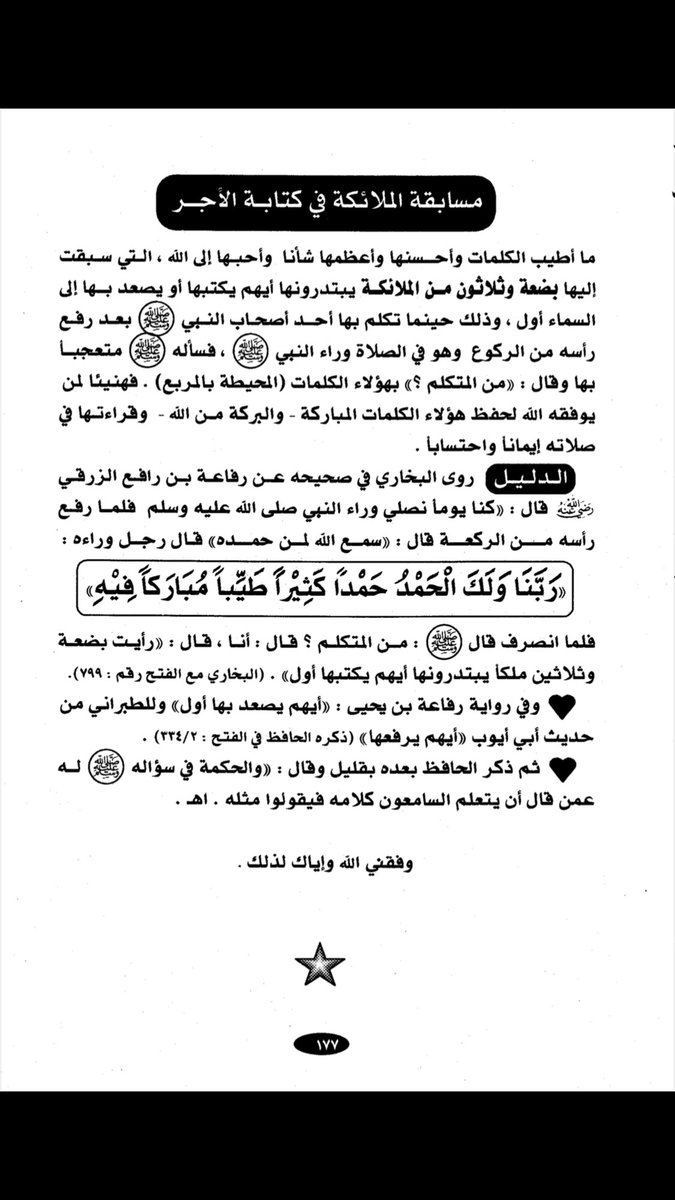 مسابقة الملائكة في كتابة الأجر
ما أطيب الكلمات وأحسنها وأعظمها شأنا وأحبها إلى الله ، التي سبقت
إليها بضعة وثلاثون من الملائكة يبتدرونها أيهم يكتبها أو يصعد بها إلى
السماء أول ، وذلك حينما تكلم بها أحد أصحاب النبي ﷺ بعد رفع
رأسه من الركوع وهو في الصلاة وراء النبي ﷺ ، فسأله ﷺ متعجباً
بها وقال : «من المتكلم ؟» بهؤلاء الكلمات (المحيطة بالمربع) . فهنيئا لمن
يوفقه الله لحفظ هؤلاء الكلمات المباركة - والبركة من الله - وقراءتها في
صلاته إيماناً واحتساباً .
الدليل روى البخاري في صحيحه عن رفاعة بن رافع الزرقي
رضي الله عنه قال : «كنا يوماً نصلي وراء النبي صلى الله عليه وسلم فلما رفع
رأسه من الركعة قال : «سمع الله لمن حمده» قال رجل وراءه :
«رَبَّنَا وَلَكَ الْحَمْدُ حَمْداً كَثِيْراً طَيِّباً مُبَارَكاً فِيْهِ»
فلما انصرف قال ﷺ : من المتكلم ؟ قال : أنا ، قال : «رأيت بضعة
وثلاثين ملكاً يبتدرونها أيهم يكتبها أول» . (البخاري مع الفتح رقم : ٧٩٩).
♥ وفي رواية رفاعة بن يحيى : «أيهم يصعد بها أول» وللطبراني من
حديث أبي أيوب «أيهم يرفعها» (ذكره الحافظ في الفتح : ٣٣٤/٢) .
♥ ثم ذكر الحافظ بعده بقليل وقال : «والحكمة في سؤاله ﷺ له
عمن قال أن يتعلم السامعون كلامه فيقولوا مثله . اهـ .
وفقني الله وإياك لذلك .
١٧٧